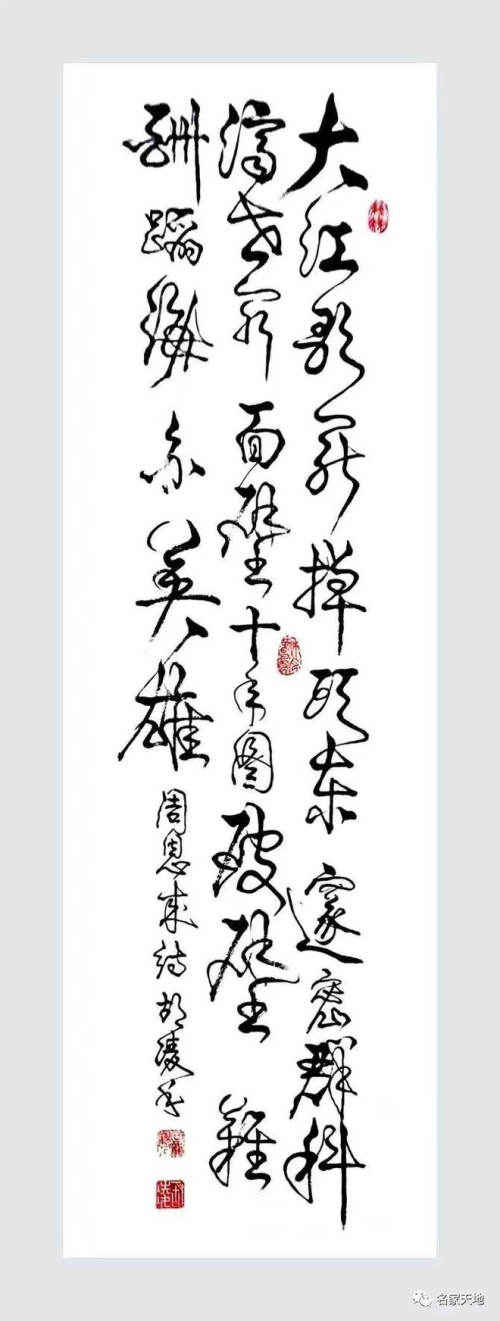 大江歌罷掉頭東邃密群科
濟世窮面壁十年圖破壁難
酬蹈海亦英雄
周恩来詩胡凌
名家天地